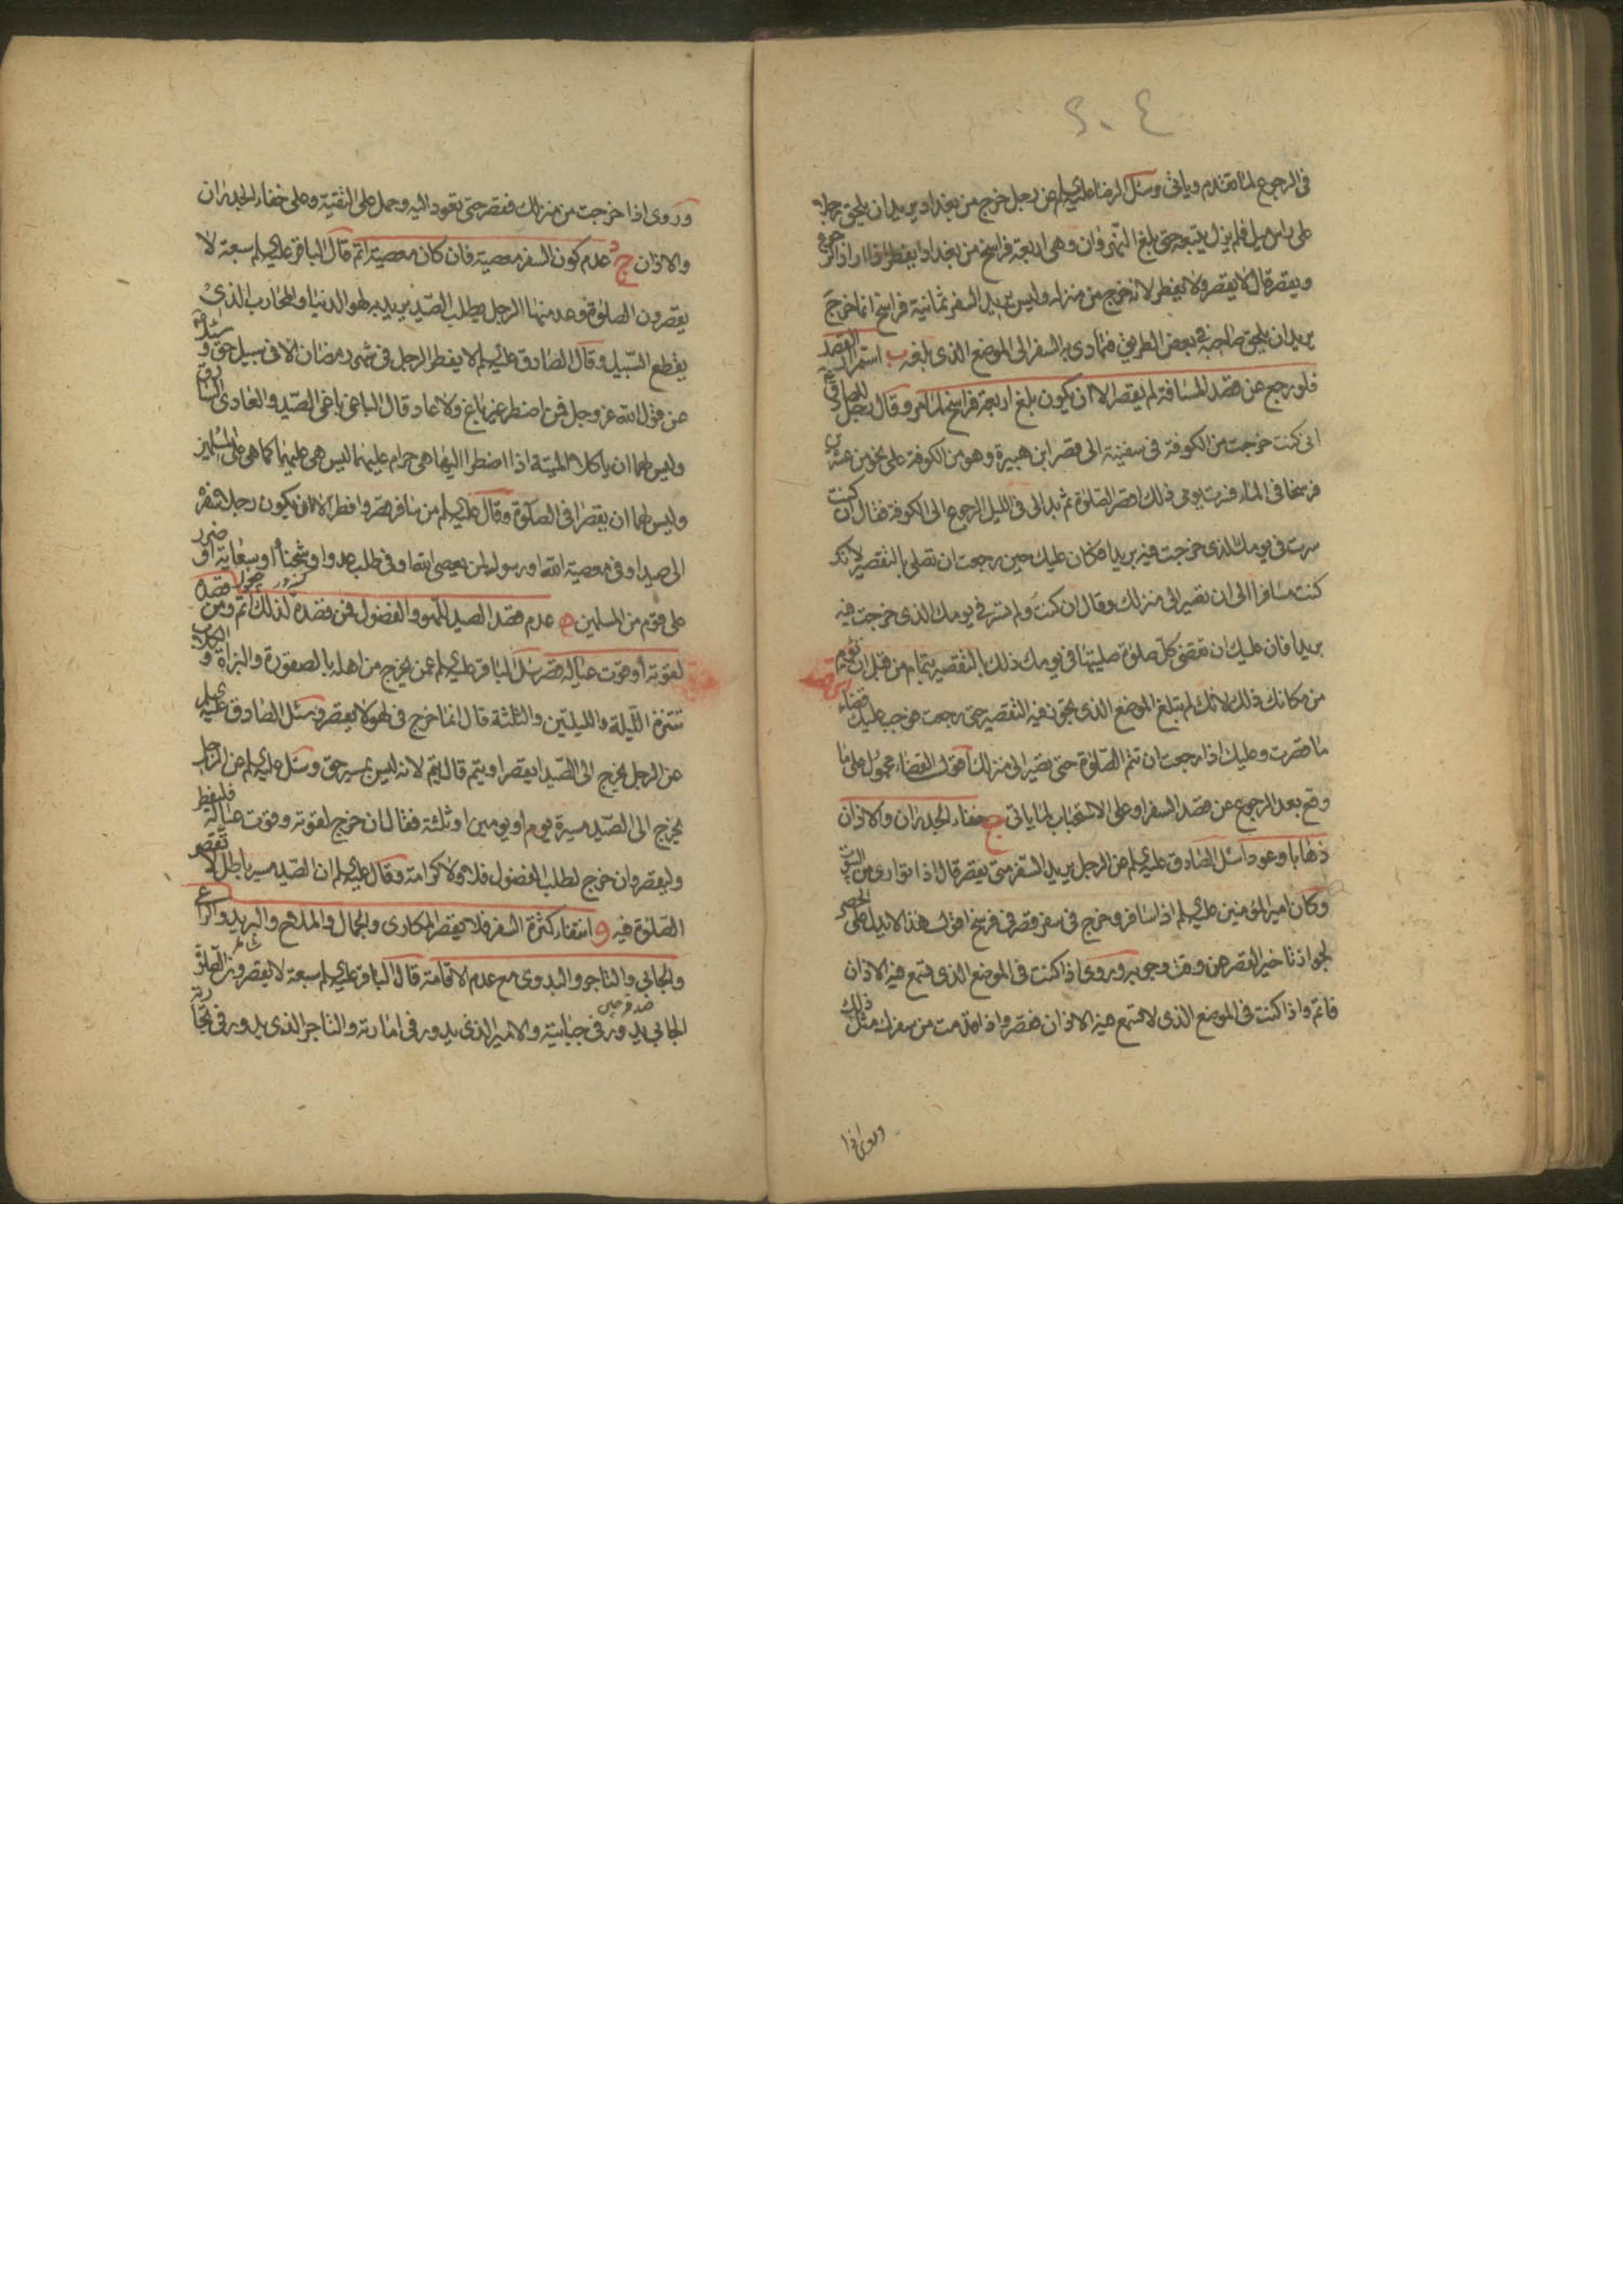 ٢٠٤
فى الرجوع لما تقدم وياتى وسئل الرضا عليه السلم عن رجل خرج من بغداد يريد ان يلحق رجلا
على راس ميل فلم يزل يتبعه حتى بلغ النهروان وهى اربعة فراسخ من بغداد ايفطر اذا اراد الرجوع
ويقصر قال لا يقصر ولا يفطر لانه خرج من منزله وليس يريد السفر ثمانية فراسخ انما خرج
يريد ان يلحق صاحبه فى بعض الطريق فتمادى به السير الى الموضع الذى بلغه ب استمرار القصد
فلو رجع عن قصد المسافة لم يقصر الا ان يكون بلغ اربعة فراسخ لما مر وقال رجل للصادق
انى كنت خرجت من الكوفة فى سفينة الى قصر ابن هبيرة وهو من الكوفة على نحو من عشرين
فرسخا فى الماء فسرت يومى ذلك اقصر الصلوة ثم بدا لى فى الليل الرجوع الى الكوفة فقال ان كنت
سرت فى يومك الذى خرجت فيه بريدا فكان عليك حين رجعت ان تصلى بالتقصير لانك
كنت مسافرا الى ان تصير الى منزلك وقال ان كنت ولم تسر فى يومك الذى خرجت فيه
بريدا فان عليك ان تقضى كل صلوة صليتها فى يومك ذلك بالتقصير بتمام من قبل ان تؤم
من مكانك ذلك لانك لم تبلغ الموضع الذى يجوز فيه التقصير حتى رجعت فوجب عليك قضاء
ما قصرت وعليك اذا رجعت ان تتم الصلوة حتى تصير الى منزلك اقول القضاء محمول على ما
وقع بعد الرجوع عن قصد السفر او على الاستحباب لما ياتى ج خفاء الجدران والاذان
ذهابا وعودا سئل الصادق عليه السلم عن الرجل يريد السفر متى يقصر قال اذا توارى من البيوت
وكان امير المؤمنين عليه السلم اذا سافر وخرج فى سفر قصر فى فرسخ اقول هذا لا يدل على الحصر
لجواز تاخير القصر عن وقت وجوبه وروى اذا كنت فى الموضع الذى تسمع فيه الاذان
فاتم واذا كنت فى الموضع الذى لا تسمع فيه الاذان فقصر واذا قدمت من سفرك مثل ذلك
وروى اذا
وروى اذا خرجت من منزلك فقصر حتى تعود اليه وحمل على التقية وعلى خفاء الجدران
والاذان د عدم كون السفر معصية فان كان معصية اتم قال الباقر عليه السلم سبعة لا
يقصرون الصلوة وعد منها الرجل يطلب الصيد يريد به لهو الدنيا والمحارب الذى
يقطع السبيل وقال الصادق عليه السلم لا يفطر الرجل فى شهر رمضان الا فى سبيل حق وسئل
عن قول الله عز وجل فمن اضطر غير باغ ولا عاد قال الباغى باغى الصيد والعادى السارق
وليس لهما ان ياكلا الميتة اذا اضطرا اليها هى حرام عليهما ليس هى عليهما كما هى على المسلمين
وليس لهما ان يقصرا فى الصلوة وقال عليه السلم من سافر قصر وافطر الا ان يكون رجلا سفره
الى صيد او فى معصية الله او رسول لمن يعصى الله او فى طلب عدو او شحناء او سعاية او ضرر
على قوم من المسلمين ه عدم قصد الصيد للهو والفضول فمن قصده لذلك اتم ومن قصده
لقوته او قوت عياله قصر سئل الباقر عليه السلم عمن يخرج من اهله بالصقورة والبزاة والكلاب
تتنزه الليلة والليلتين والثلثة قال انما خرج فى لهو لا يقصر وسئل الصادق عليه السلم
عن الرجل يخرج الى الصيد ايقصر او يتم قال يتم لانه ليس بمسير حق وسئل عليه السلم عن الرجل
يخرج الى الصيد مسيرة يوم او يومين او ثلثة فقال ان خرج لقوته وقوت عياله فليفطر
وليقصر وان خرج لطلب الفضول فلا ولا كرامة وقال عليه السلم ان الصيد مسير باطل لا تقصر
الصلوة فيه و انتفاء كثرة السفر فلا يقصر المكارى والجمال والملاح والبريد والراعى
والجابى والتاجر والبدوى مع عدم الاقامة قال الباقر عليه السلم سبعة لا يقصرون الصلوة
الجابى يدور فى جبايته والامير الذى يدور فى امارته والتاجر الذى يدور فى تجارته